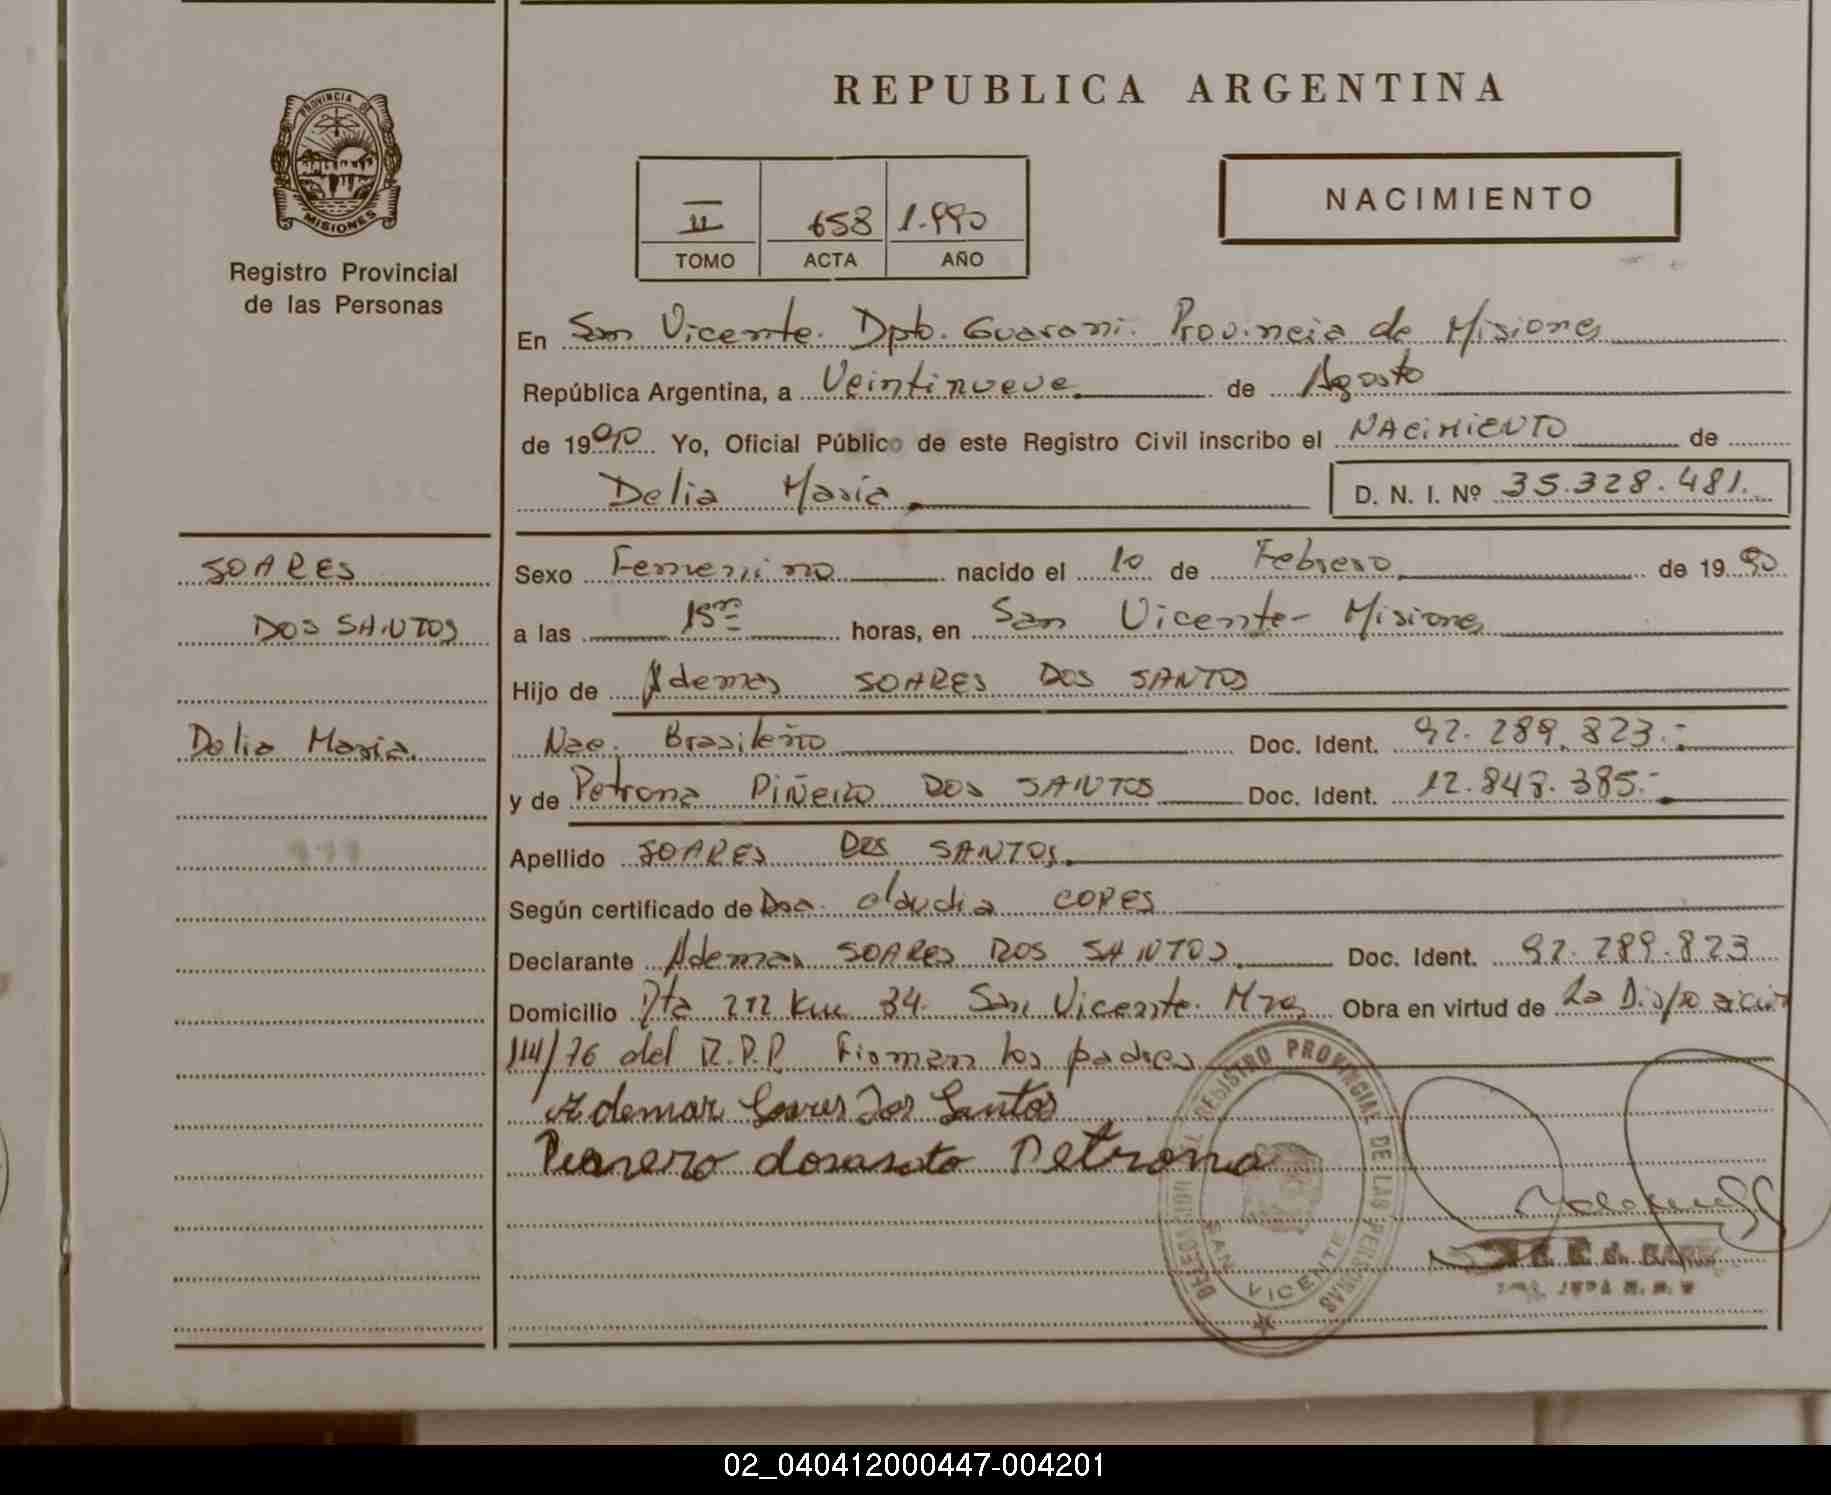 REPUBLICA ARGENTINA
PROVINCIA DE
MISIONES
Registro Provincial
de las Personas
II 658 1.990
TOMO ACTA AÑO
NACIMIENTO
En San Vicente. Dpto. Guarani. Provincia de Misiones
República Argentina, a Veintinueve de Agosto
de 1990 Yo, Oficial Público de este Registro Civil inscribo el NACIMIENTO de
Delia Maria D. N. I. Nº 35.328.481.
SOARES
DOS SANTOS
Delia Maria.
Sexo Femenino nacido el 10 de Febrero de 1990
a las 15 horas, en San Vicente - Misiones
Hijo de Ademar SOARES DOS SANTOS
Nac. Brasileño Doc. Ident. 92.289.823.-
y de Petrona PIÑEIRO DOS SANTOS Doc. Ident. 12.848.385.-
Apellido SOARES DOS SANTOS.
Según certificado de Dra. Claudia COPES
Declarante Ademar SOARES DOS SANTOS Doc. Ident. 92.289.823
Domicilio Rta 212 Km 34. San Vicente. Mnes Obra en virtud de La Disposición
114/76 del R.P.P. Firman los padres
Ademar Soares Dos Santos
dosasato Petrona
REGISTRO PROVINCIAL DE LAS PERSONAS
DELEGACION
SAN VICENTE
02_040412000447-004201